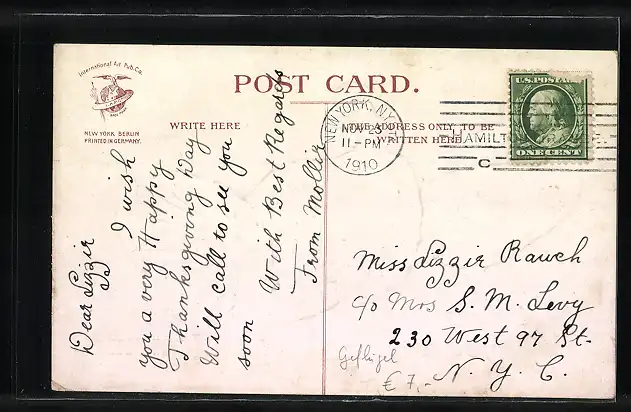 International Art Pub. Co.
NEW YORK BERLIN
PRINTED IN GERMANY.
POST CARD.
WRITE HERE
THE ADDRESS ONLY TO BE
WRITTEN HERE
NEW YORK, N.Y.
NOV 23
11-PM
1910
HAMILTON
C
U.S. POSTAGE
ONE CENT
Dear Lizzie
I wish
you a very Happy
Thanksgiving Day
Will call to see you
soon
With Best Regards
From Mollie
Miss Lizzie Rauch
c/o Mrs S. M. Levy
230 West 97 St.
N. Y. C.
Geflügel
€ 7,-